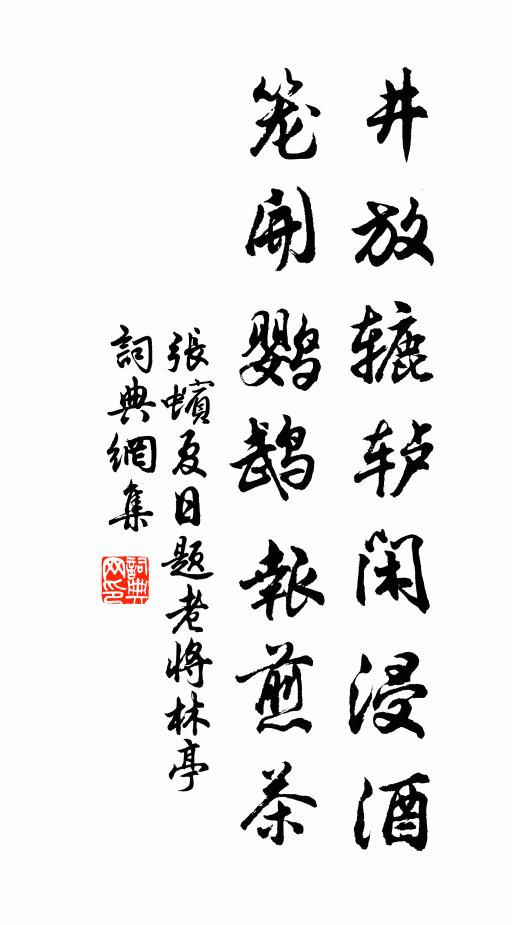 井放辘轳闲浸酒
笼開鹦鹉報煎茶
張蠙夏日題老將林亭
詞典網集
詞典网印